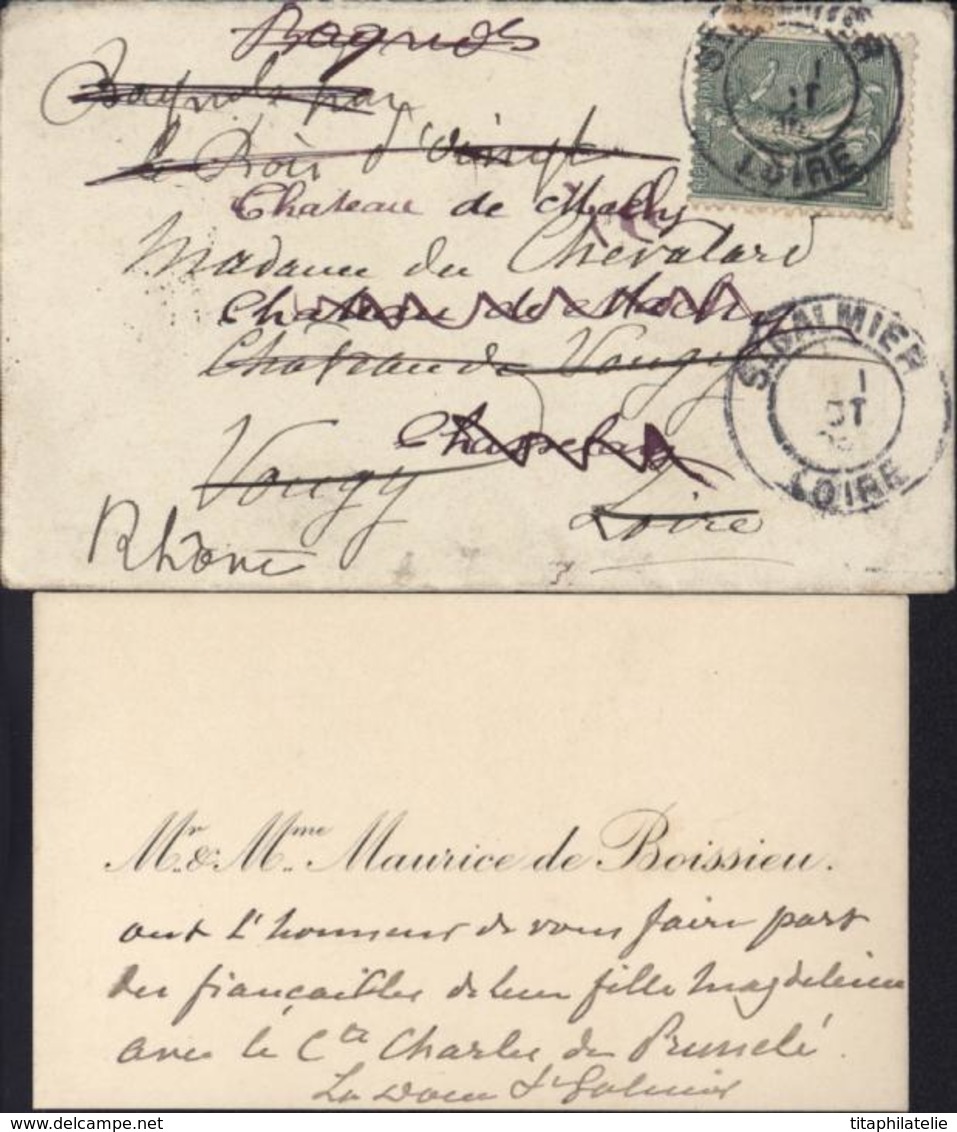 Bagnols
Bagnols par
le Bois d'Oingt
Chateau de Machy
Madame du Chevalard
Chateau de Machy
Chateau de Vougy
Chasselay
Vougy
Loire
Rhône
LOIRE
ST GALMIER
LOIRE
Mr. & Mme. Maurice de Boissieu.
ont l'honneur de vous faire part
des fiançailles de leur fille Magdeleine
avec le Cte Charles de Prunelé.
La Doue St Galmier
delcampe.net
titaphilatelie